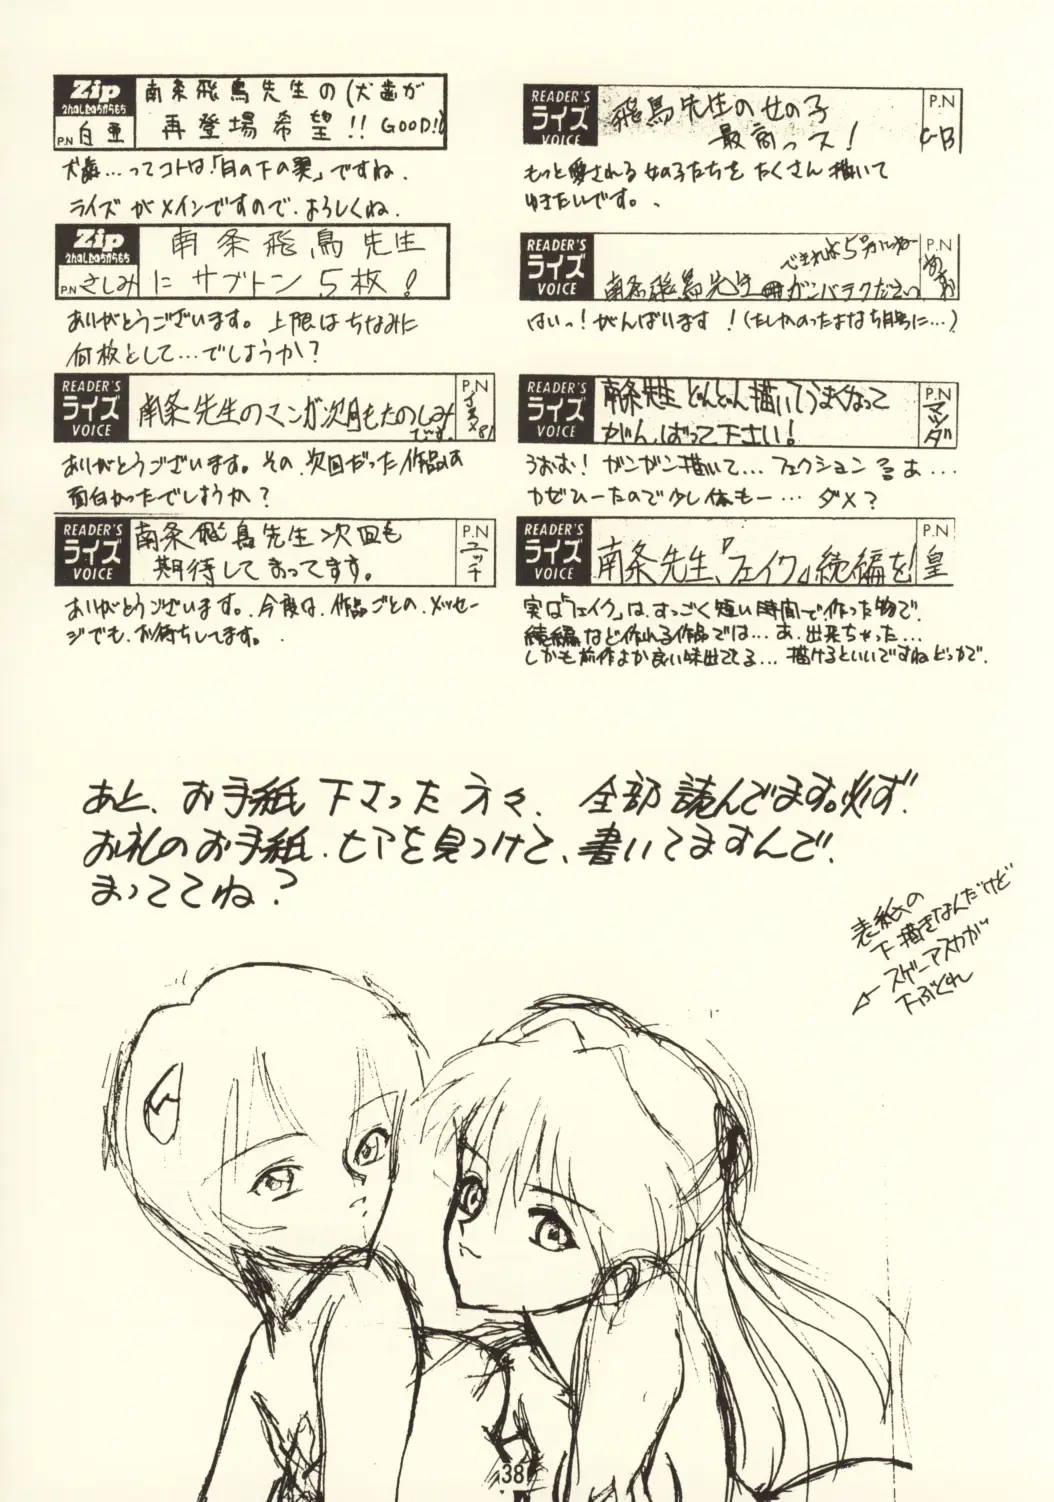 Zip
P.N 白亜
南条飛鳥先生の(犬歯が
再登場希望!! GOOD!!
犬歯…ってコトは「月の下の翼」ですね.
ライズがメインですので.よろしくね.
Zip
P.N さしみ
南条飛鳥先生
にザブトン5枚!
ありがとうございます。上限はちなみに
何枚として…でしょうか?
READER'S
ライズ
VOICE
南条先生のマンガ次回もたのしみ
です.
P.N
ありがとうございます。その.次回だった作品は
面白かったでしょうか?
READER'S
ライズ
VOICE
南条飛鳥先生次回も
期待してまってます。
P.N
ユッチ
ありがとうございます.今度は.作品ごとの.メッセー
ジでも.お待ちしてます。
READER'S
ライズ
VOICE
飛鳥先生の女の子
最高っス!
P.N
C-B
もっと愛される女の子たちをたくさん描いて
ゆきたいです。
READER'S
ライズ
VOICE
南条飛鳥先生ガンバテクださい
P.N
はいっ!がんばります!
READER'S
ライズ
VOICE
南条先生どんどん描いてうまくなって
がんばって下さい!
P.N
マツダ
うおお!ガンガン描いて…
カゼひーたので少し休もー…ダメ?
READER'S
ライズ
VOICE
南条先生、『フェイク』続編を!
P.N
皇
実は「フェイク」は.すっごく短い時間で作った物で.
続編など作れる作品では…あ.出来ちゃった…
しかも前作より良い味出てる…描けるといいですねどっかで.
あと、お手紙下さった方々、全部読んでます。必ず.
お礼のお手紙.ヒマを見つけて、書いてますんで.
まっててね?
表紙の
下描きなんだけど
スゲーアスカが
下ぶくれ
38